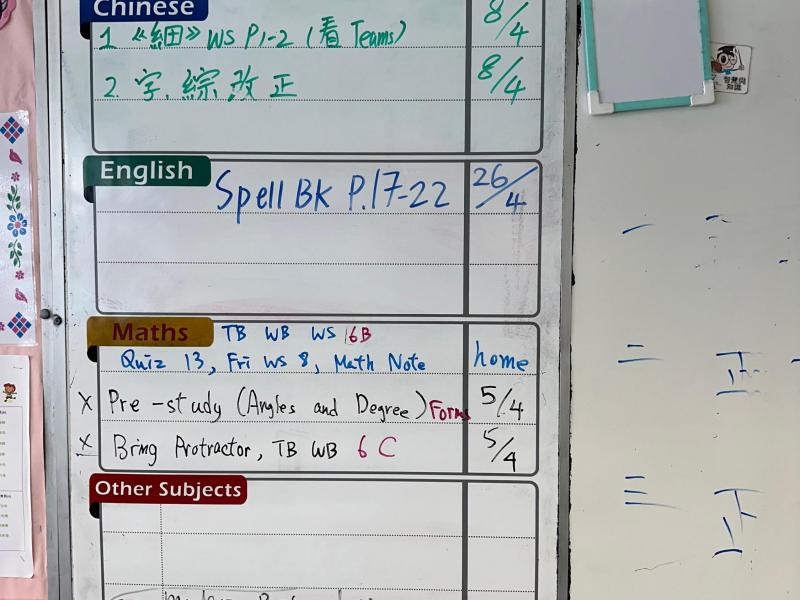 Chinese
1 《細》 WS P1-2 (看 Teams) 8/4
2. 字, 綜 改正 8/4
English
Spell BK P.17-22 26/4
Maths TB WB WS 6B
Quiz 13, Fri WS 8, Math Note home
X Pre-study (Angles and Degree) Forms 5/4
X Bring Protractor, TB WB 6C 5/4
Other Subjects
一
二 正
三 正